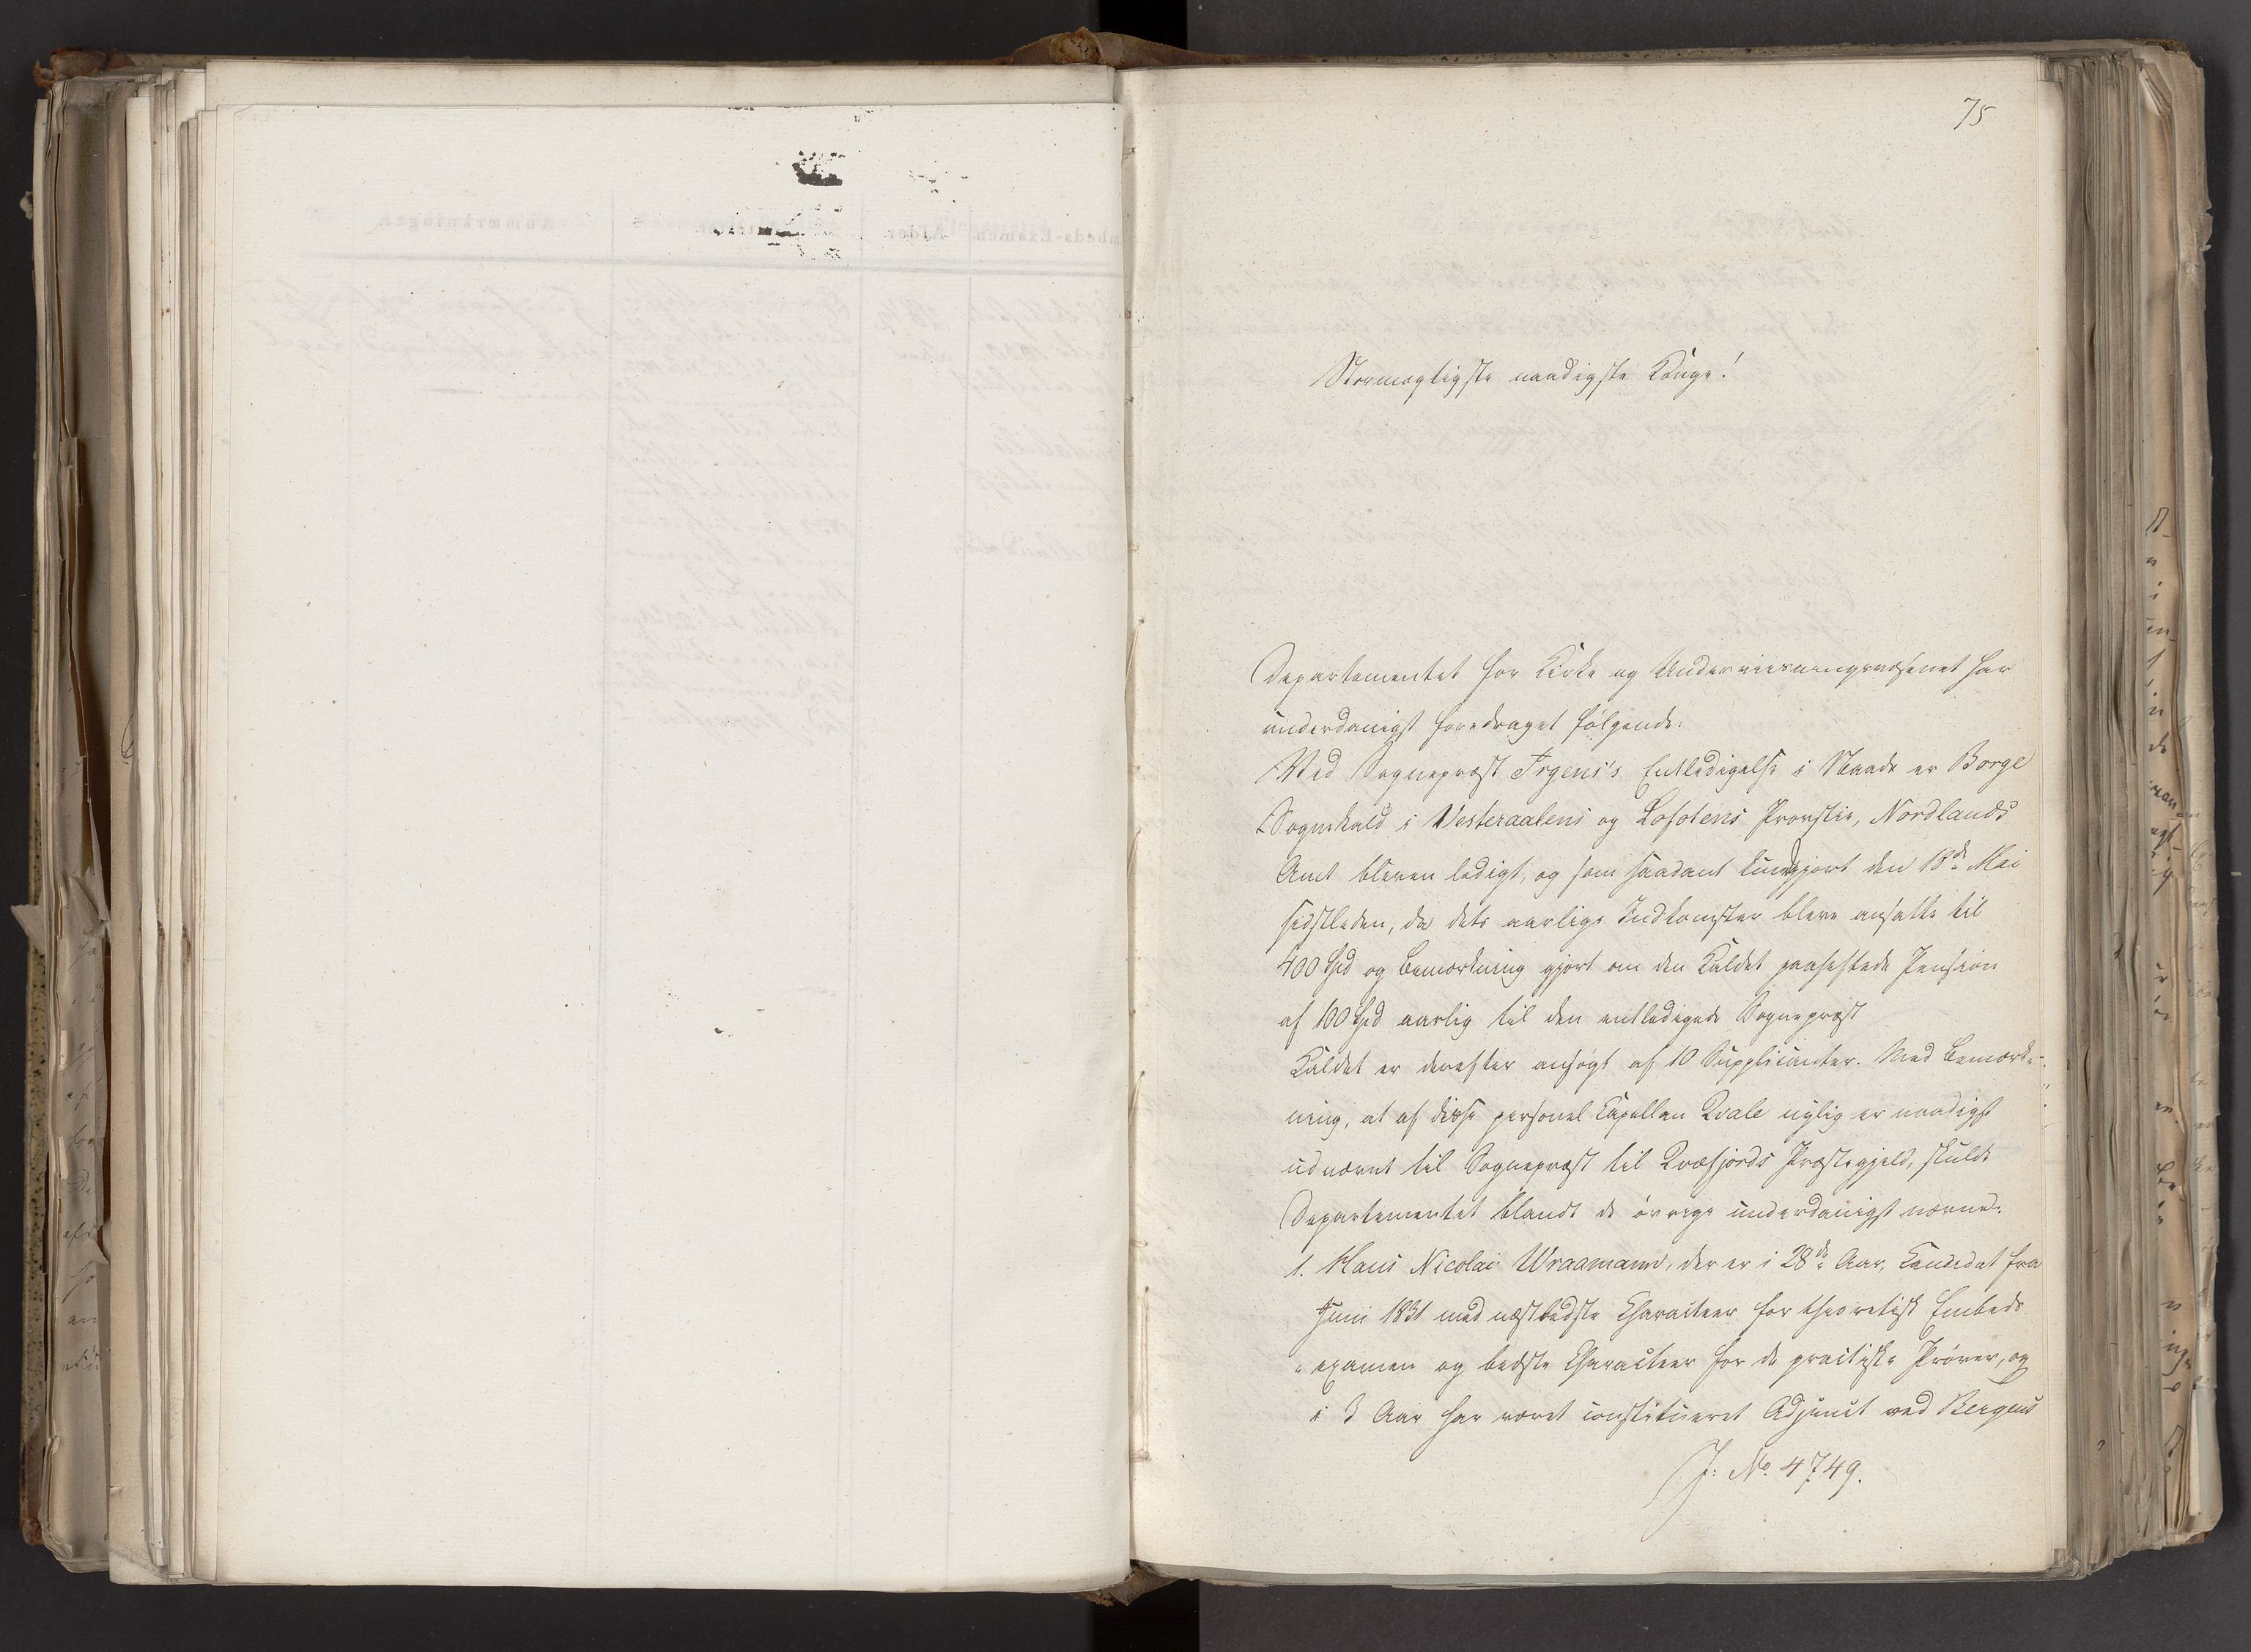 75
Stormægtigste naadigste Konge!
Departementet for Kirke og Underviisningsvæsenet har
underdanigst foredraget følgende:
Ved Sognepræst Irgens's Entledigelse i Naade er Borge
Sognekald i Vesteraalens og Lofotens Provstie, Nordlands
Amt bleven ledigt, og som saadant kundgjort den 18de Mai
sidstleden, da dets aarlige Indkomster bleve ansatte til
400 Spd og Bemærkning gjort om den Kaldet paahæftede Pension
af 100 Spd aarlig til den entledigede Sognepræst
Kaldet er derefter ansøgt af 10 Supplicanter. Med Bemærk-
ning, at af disse personel Capellan Qvale nylig er naadigst
udnævnt til Sognepræst til Qvæfjords Præstegjeld, skulde
Departementet blandt de øvrige underdanigst nævne:
1. Hans Nicolai Wraamann, der er i 28de Aar, Candidat fra
Juni 1831 med næstbedste Characteer for theoretisk Embeds
examen og bedste Characteer for de practiske Prøver, og
i 3 Aar har været constitueret Adjunct ved Bergens
J: No. 4749.